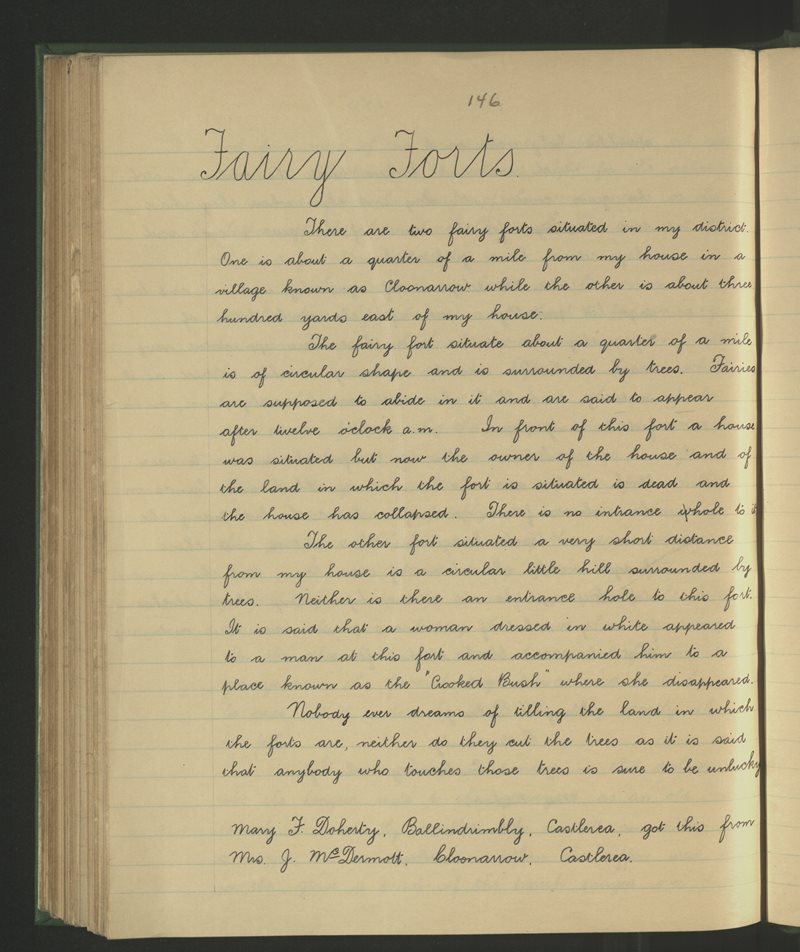 146
Fairy Forts.
There are two fairy forts situated in my district.
One is about a quarter of a mile from my house in a
village known as Cloonarrow while the other is about three
hundred yards east of my house.
The fairy fort situate about a quarter of a mile
is of circular shape and is surrounded by trees. Fairies
are supposed to abide in it and are said to appear
after twelve o'clock a.m. In front of this fort a house
was situated but now the owner of the house and of
the land in which the fort is situated is dead and
the house has collapsed. There is no intrance whole to it
The other fort situated a very short distance
from my house is a circular little hill surrounded by
trees. Neither is there an entrance hole to this fort.
It is said that a woman dressed in white appeared
to a man at this fort and accompanied him to a
place known as the "Crooked Bush" where she disappeared.
Nobody ever dreams of tilling the land in which
the forts are, neither do they cut the trees as it is said
that anybody who touches those trees is sure to be unlucky
Mary F. Doherty, Ballindrimbly, Castlerea, got this from
Mrs. J. McDermott, Cloonarrow, Castlerea.